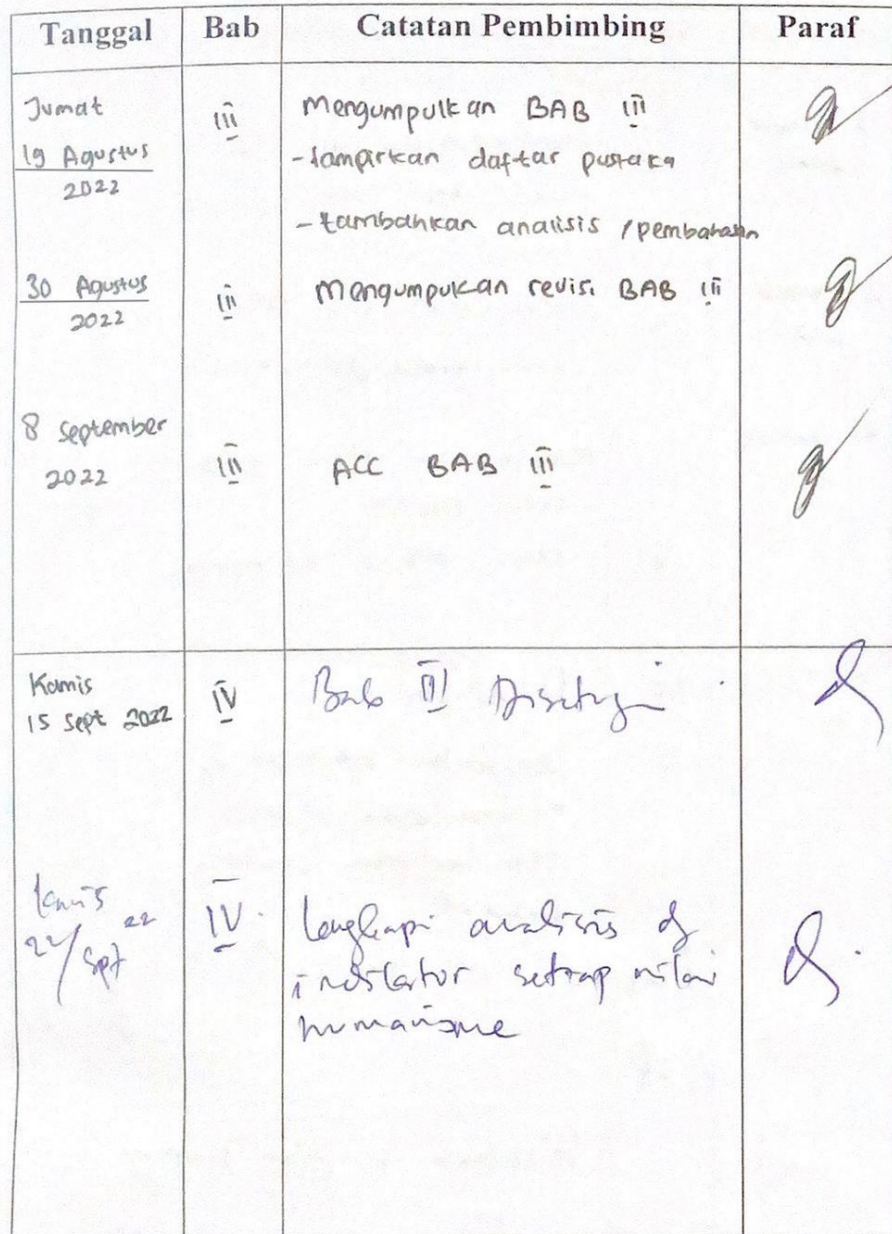 Tanggal Bab Catatan Pembimbing Paraf
Jumat III Mengumpulkan BAB III
19 Agustus - lampirkan daftar pustaka
2022
- tambahkan analisis / pembahasan
30 Agustus III Mengumpulkan revisi BAB III
2022
8 September
2022 III ACC BAB III
Kamis
15 Sept 2022 IV Bab III Disetujui
Kamis
22/Sept 22 IV. Lengkapi analisis dg
indikator setiap nilai
humanisme